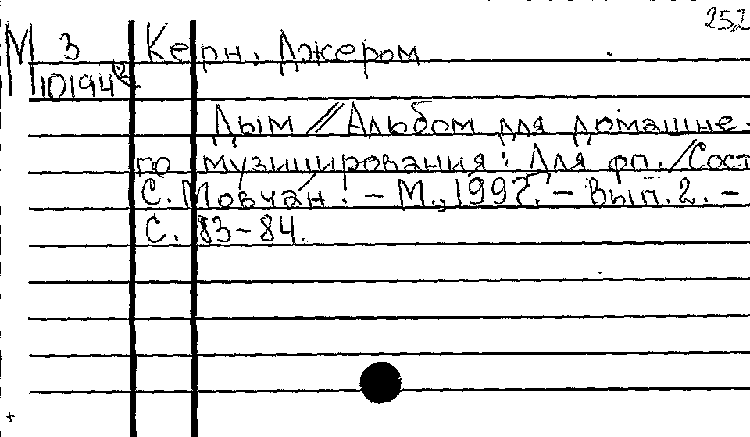 252
М 3 Керн, Джером
10194②
Дым // Альбом для домашне-
го музицирования: Для фп. / Сост.
С. Мовчан. – М., 1997. – Вып. 2. –
С. 83–84.